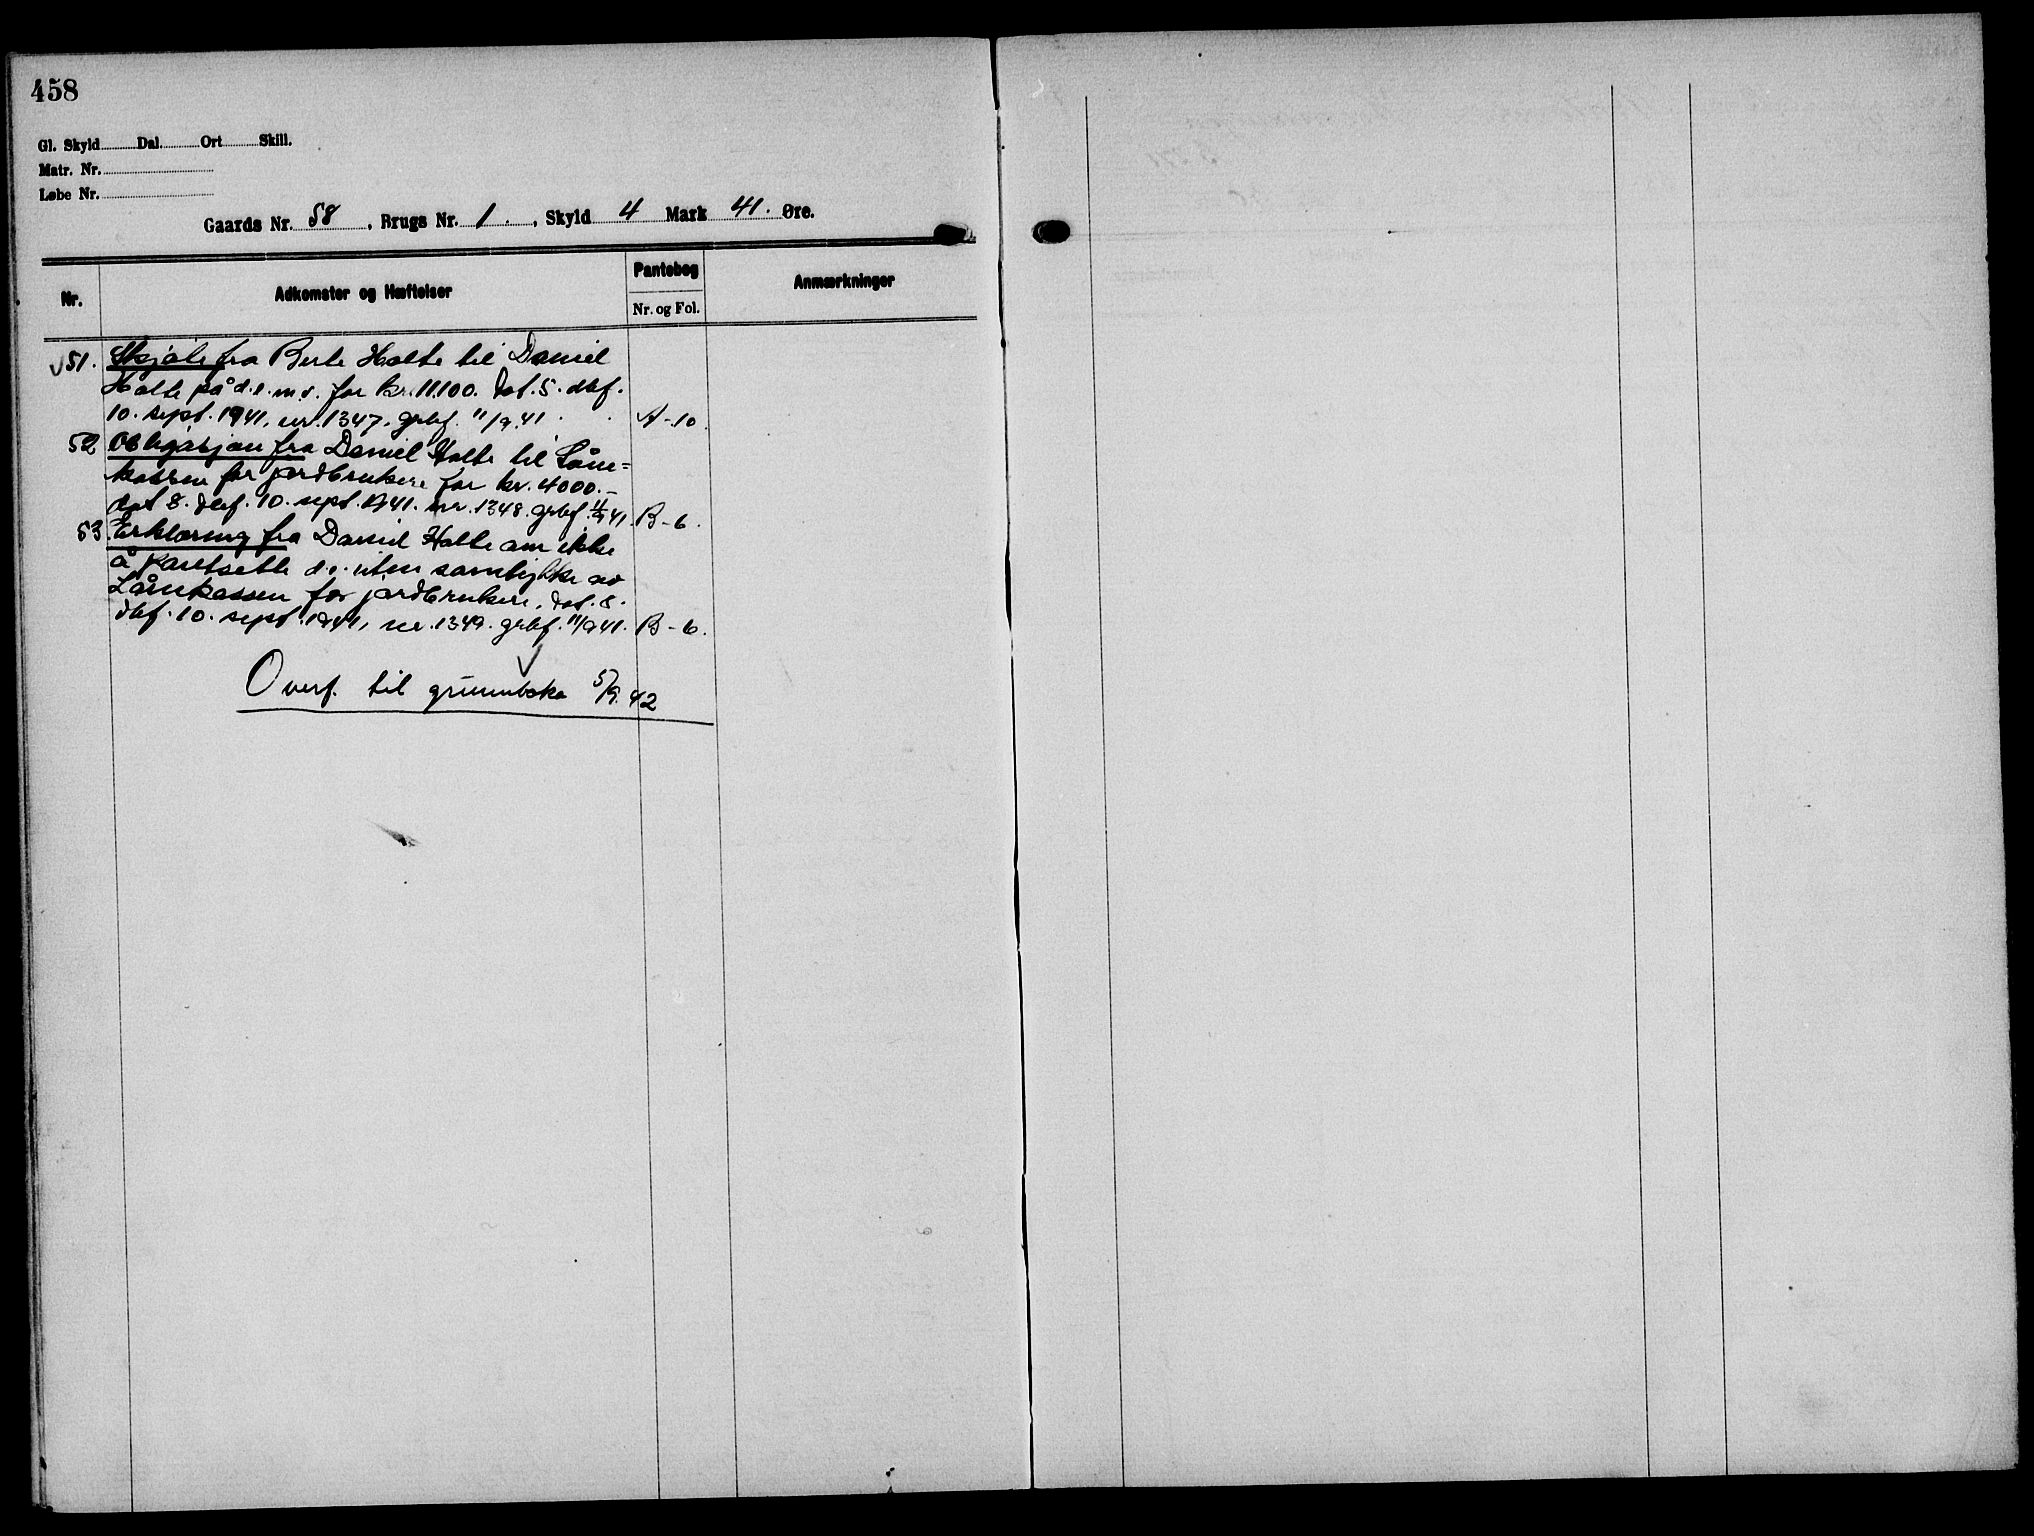 458
Gl. Skyld Dal. Ort Skill.
Matr. Nr.
Løbe Nr.
Gaards Nr. 58, Brugs Nr. 1., Skyld 4 Mark 41. Øre.
Nr. Adkomster og Hæftelser Pantebog Anmærkninger
Nr. og Fol.
51. Skjøte fra Berte Holte til Daniel
Holte på d.e. m.v. for kr. 11.100. Dat. 5. dbf.
10. sept. 1941, nr. 1347. grbf. 11/9.41. A-10.
52 Obligasjon fra Daniel Holte til Låne=
kassen for jordbrukere for kr. 4000.-
dat 8. dbf. 10. sept. 1941. nr. 1348. grbf. 11/9 41. B-6.
53 Erklæring fra Daniel Holte om ikke
å pantsette d.e. uten samtykke av
Lånekassen for jordbrukere. Dat. 8.
dbf. 10. sept. 1941, nr. 1349. grbf. 11/9 41. B-6.
Overf. til grunnboka 5/9. 42